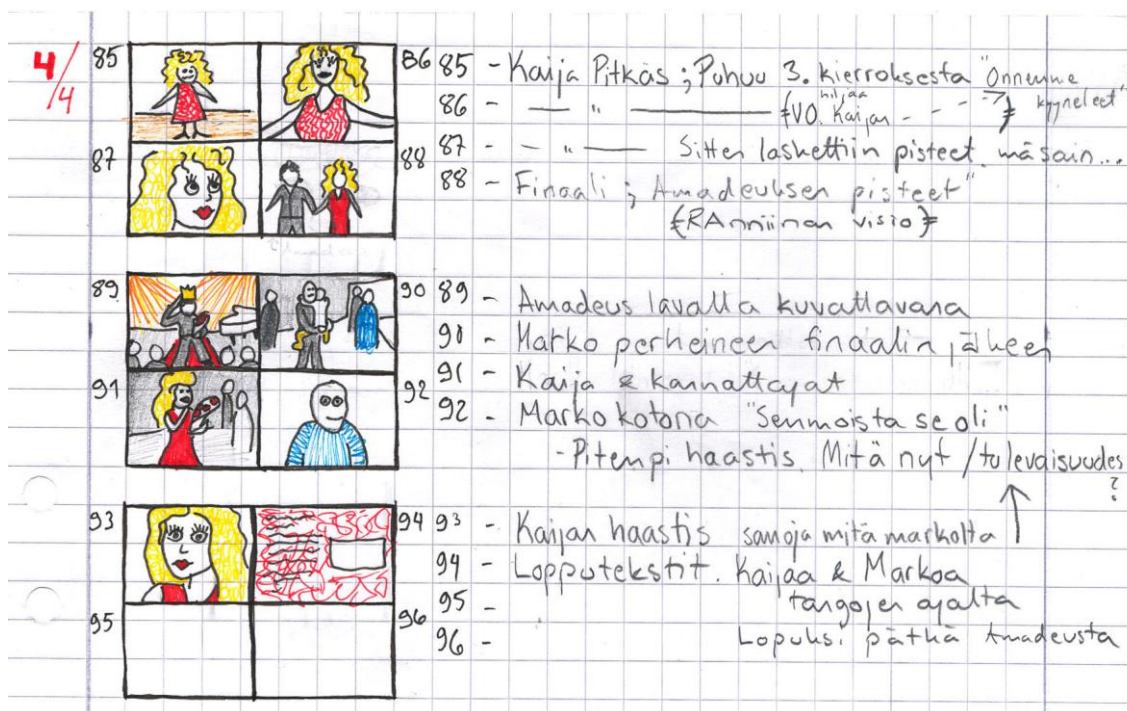 4/4
85 86 85 - Kaija Pitkäs ; Puhuu 3. kierroksesta "Onnemme kyyneleet"
86 - — " — {VO. Kaijan hiljaa - - - }
87 88 87 - — " — Sitten laskettiin pisteet, mä sain...
88 - Finaali ; Amadeuksen pisteet"
{RAnniinan visio}
89 90 89 - Amadeus lavalla kuvattavana
90 - Marko perheineen finaalin jälkeen
91 92 91 - Kaija & kannattajat
92 - Marko kotona "Senmoista se oli"
- Pitempi haastis. Mitä nyt / tulevaisuudes ?
93 94 93 - Kaijan haastis samoja mitä markolta
94 - Lopputekstit. Kaijaa & Markoa
95 - tangojen ajalta
95 96 96 - Lopuksi pätkä Amadeusta